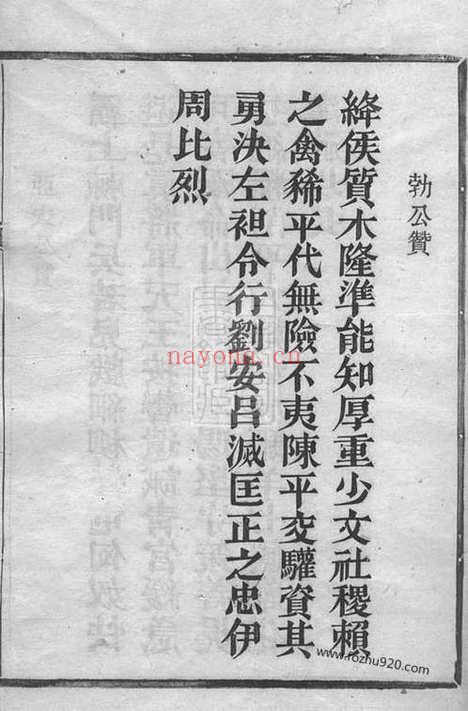 勃公贊
絳侯質木隆準能知厚重少文社稷賴
之禽豨平代無險不夷陳平交驩資其
勇決左袒令行劉安呂滅匡正之忠伊
周比烈
nayona.cn
www.rozhu920.com